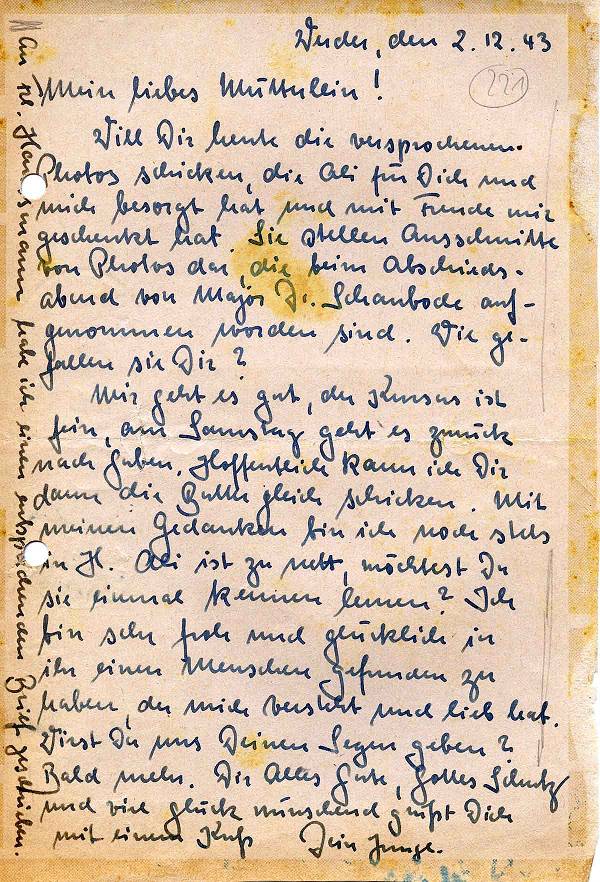 den 2.12.43
221
Mein liebes Mütterlein!
Will Dir heute die versprochenen
Photos schicken, die Ali für Dich und
mich besorgt hat und mit Freude mir
geschenkt hat. Sie stellen Ausschnitte
von Photos dar, die beim Abschieds-
abend von Major Dr. Schaubode auf-
genommen worden sind. Wie ge-
fallen sie Dir?
Mir geht es gut, der Kursus ist
fein, am Samstag geht es zurück
nach Guben. Hoffentlich kann ich Dir
dann die Butter gleich schicken. Mit
meinen Gedanken bin ich noch stets
in H. Ali ist zu nett, möchtest Du
sie einmal kennen lernen? Ich
bin sehr froh und glücklich in
ihr einen Menschen gefunden zu
haben, der mich versteht und lieb hat.
Wirst Du uns Deinen Segen geben?
Bald mehr. Dir Alles Gute, Gottes Schutz
und viel Glück wünschend grüßt Dich
mit einem Kuß Dein Junge.
An Frl. Hansmann habe ich einen entsprechenden Brief geschrieben.